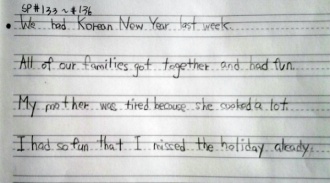 SP#133~#136
• We had Korean New Year last week.
All of our families got together and had fun.
My mother was tired because she cooked a lot.
I had so fun that I missed the holiday already.